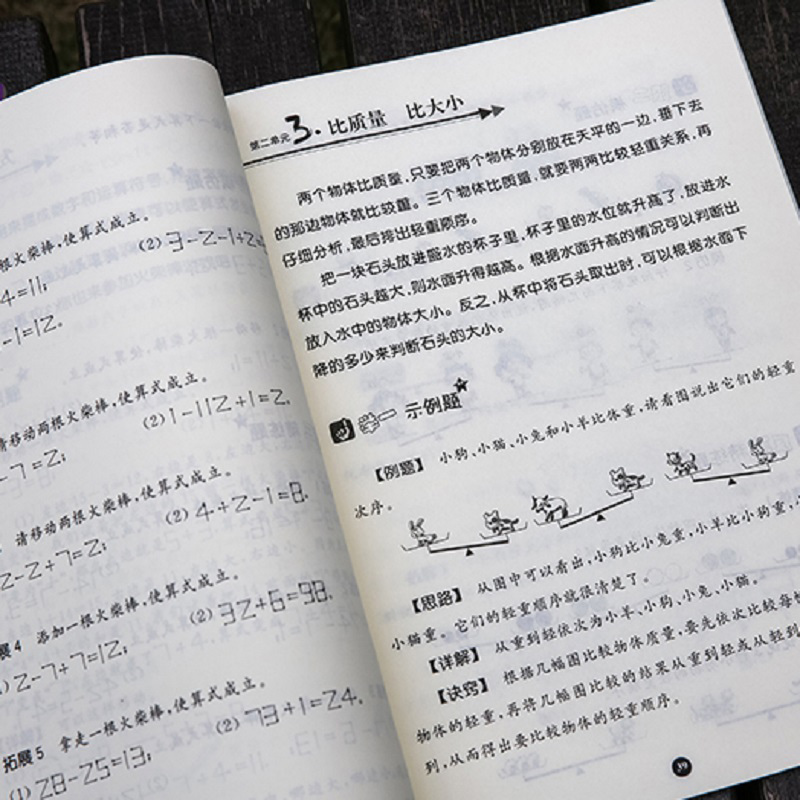 根火柴棒,使算式成立。
(2) 3-2-1+2=
4=11;
-1=12.
请移动两根火柴棒,使算式成立。
(2) 1-112+1=2.
-7=2;
请移动两根火柴棒,使算式成立。
(2) 4+2-1=8.
2-2+7=2;
展4 添加一根火柴棒,使算式成立。
(2) 32+6=98.
) 2-7+7=12;
拓展5 拿走一根火柴棒,使算式成立。
(2) 73+1=24.
(1) 28-25=13;
第二单元 3. 比质量 比大小
两个物体比质量,只要把两个物体分别放在天平的一边,垂下去
的那边物体就比较重。三个物体比质量,就要两两比较轻重关系,再
仔细分析,最后排出轻重顺序。
把一块石头放进盛水的杯子里,杯子里的水位就升高了,放进水
杯中的石头越大,则水面升得越高。根据水面升高的情况可以判断出
放入水中的物体大小。反之,从杯中将石头取出时,可以根据水面下
降的多少来判断石头的大小。
示例题
【例题】 小狗、小猫、小兔和小羊比体重,请看图说出它们的轻重
次序。
【思路】 从图中可以看出,小狗比小兔重,小羊比小狗重,
小猫重。它们的轻重顺序就很清楚了。
【详解】 从重到轻依次为小羊、小狗、小兔、小猫。
【诀窍】 根据几幅图比较物体质量,要先依次比较每
物体的轻重,再将几幅图比较的结果从重到轻或从轻到
到,从而得出要比较物体的轻重顺序。
39